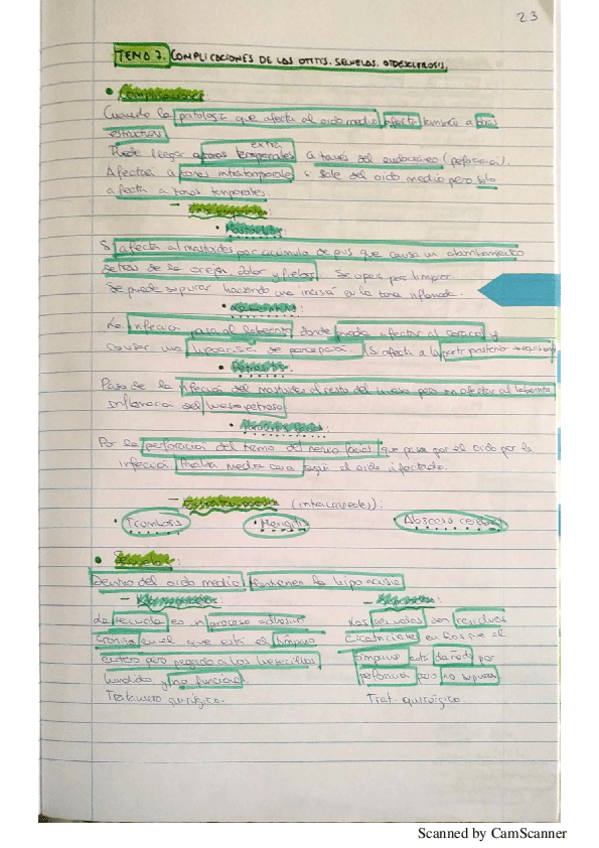 23
TEMA 7. COMPLICACIONES DE LAS OTITIS. SECUELAS. OTOESCLEROSIS.
• Complicaciones
Cuando la patología que afecta al oído medio afecta también a otras
estructuras.
Puede llegar a zonas extra temporales a través del endocráneo (perforación).
Afectará a zonas intratemporales si sale del oído medio pero sólo
afecta a zonas temporales
- Intratemporales
• Mastoiditis
Si afecta al mastoides por acúmulo de pus que causa un abombamiento
detrás de la oreja, dolor y fiebre. Se opera por limpiar.
Se puede supurar haciendo una incisión en la zona inflamada.
• Laberintitis:
La infección pasa al laberinto donde puede afectar al caracol y
causar una hipoacusia de percepción. (Si afecta a la parte posterior →
• Petrositis:
Paso de la infección del mastoides al resto del hueso pero sin afectar al laberinto
Inflamación del hueso petroso
•
Por la perforación del tramo del nervio facial que pasa por el oído por la
infección. Parálisis media cara según el oído afectado.
- Extratemporales (intracraneales):
• Trombosis • Meningitis Absceso cerebral
• Secuelas:
Dentro del oído medio, mantienen la hipoacusia
-
La secuela es un proceso adhesivo
crónico en el que está el tímpano
entero pero pegado a los huesecillos
hundido y no funciona.
Tratamiento quirúrgico.
-
Las secuelas son residuos
cicatriciales en los que el
tímpano está dañado por
perforación pero no supura
Trat. quirúrgico.
Scanned by CamScanner